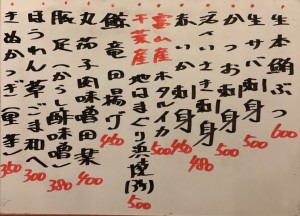 生本鮪ぶつ 600
生サバ刺身 500
かつお刺身 500
活〆いさき刺身 480
赤いか刺身 450
富山産 ホタルイカ 500
千葉産 地はまぐり浜焼(3ケ) 500
鯨竜田揚げ 450
丸茄子肉味噌田楽 400
豚足(からし酢味噌) 380
ほうれん草ごま和へ 300
きぬかつぎ(里芋) 350